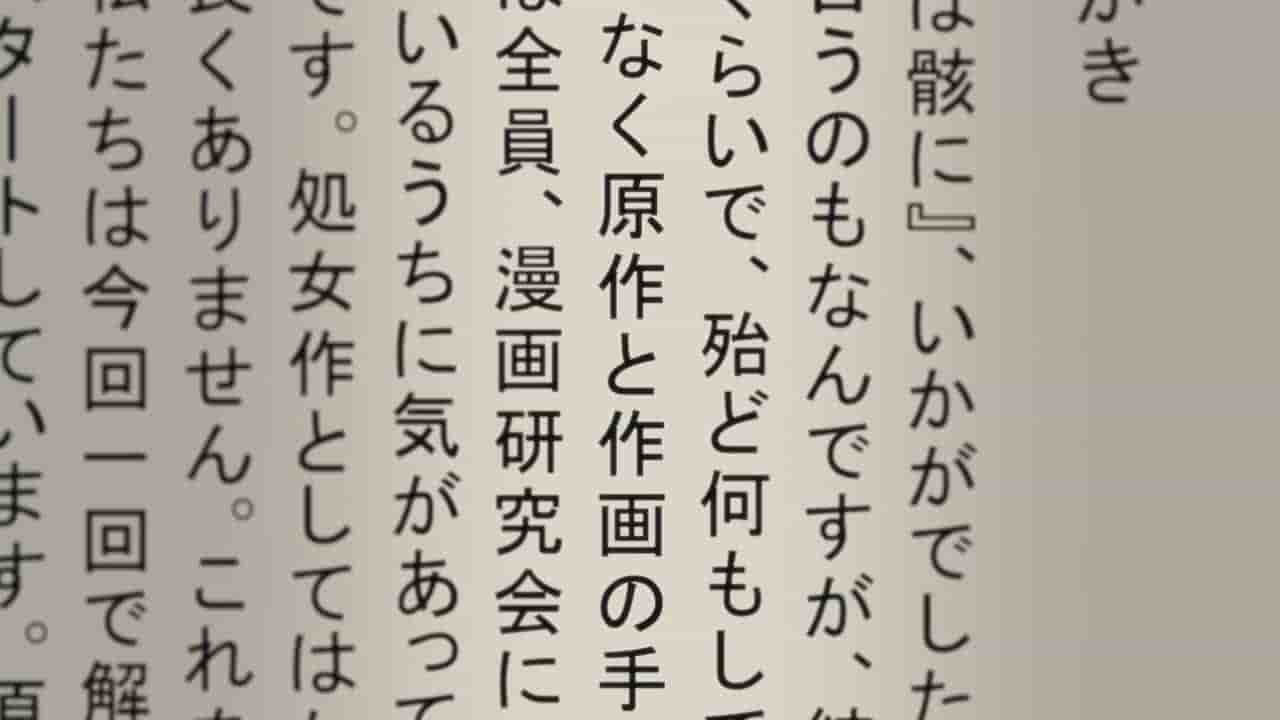 がき
は骸に』、いかがでした
言うのもなんですが、
くらいで、殆ど何もして
なく原作と作画の手
は全員、漫画研究会に
いるうちに気があって
です。処女作としては
良くありません。これ
私たちは今回一回で解
タートしています。